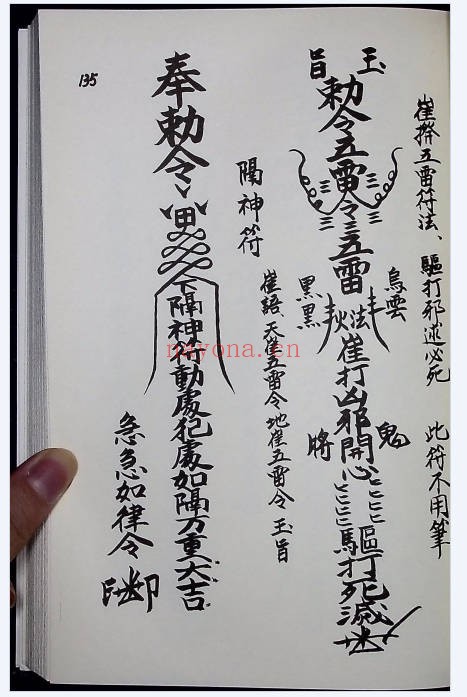 崔搿五雷符法、驅打邪逑必死 此符不用筆
玉旨
勅令五雷令三五雷
烏雲
黑黑
法
崔打凶邪開心
鬼
將
驅打死滅
崔語、天崔五雷令地崔五雷令 玉旨
隔神符
奉勅令
田
下隔神符動處犯處如隔万重大吉
急急如律令
印
135
nayona.cn